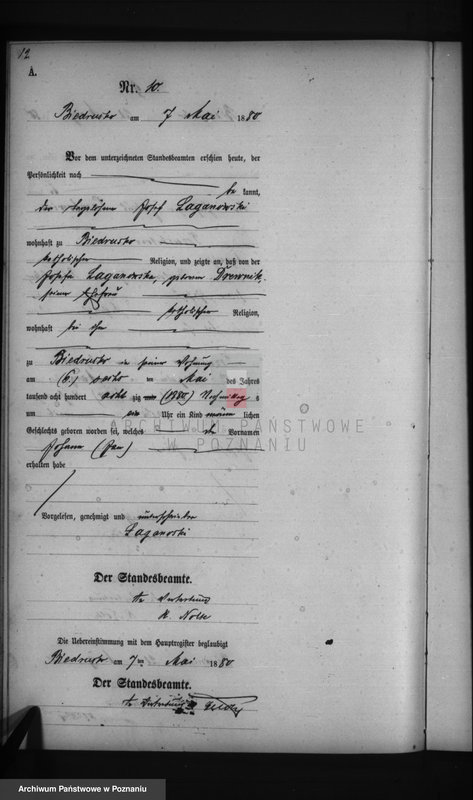 12
A.
Nr. 10.
Biedrusko am 7 Mai 1880
Vor dem unterzeichneten Standesbeamten erschien heute, der
Persönlichkeit nach
be kannt,
der Tagelöhner Josef Laganowski
wohnhaft zu Biedrusko
katholischer Religion, und zeigte an, daß von der
Josefa Laganowska, geboren Drewniak,
seiner Ehefrau
katholischer Religion,
wohnhaft bei ihm
zu Biedrusko in seiner Wohnung
am (6.) Mai des Jahres
tausend acht hundert acht zig (1880) Nachmittag s
um Uhr ein Kind männ lichen
Geschlechts geboren worden sei, welches Vornamen
Johann (Jan)
erhalten habe
Vorgelesen, genehmigt und unterschrieben
Laganoski
Der Standesbeamte.
In Vertretung
K. Nolte
Die Uebereinstimmung mit dem Hauptregister beglaubigt
Biedrusko am 7 ten Mai 1880
Der Standesbeamte.
In Vertretung
ARCHIWUM PAŃSTWOWE
W POZNANIU
Archiwum Państwowe w Poznaniu